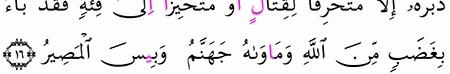 دُبُرَهُۥ إِلَّا مُتَحَرِّفًا لِّقِتَالٍ أَوْ مُتَحَيِّزًا إِلَىٰ فِئَةٍ فَقَدْ بَآءَ
بِغَضَبٍ مِّنَ ٱللَّهِ وَمَاوَىٰهُ جَهَنَّمُ وَبِيسَ ٱلْمَصِيرُ ١٦